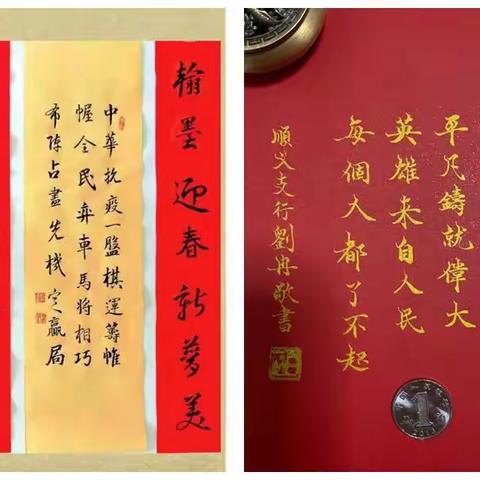 翰墨迎春新夢美
中華抗疫一盤棋運籌帷
幄全民弈車馬將相巧
布陣占盡先機定贏局
平凡鑄就偉大
英雄来自人民
每個人都了不起
順义支行劉冉敬書
1